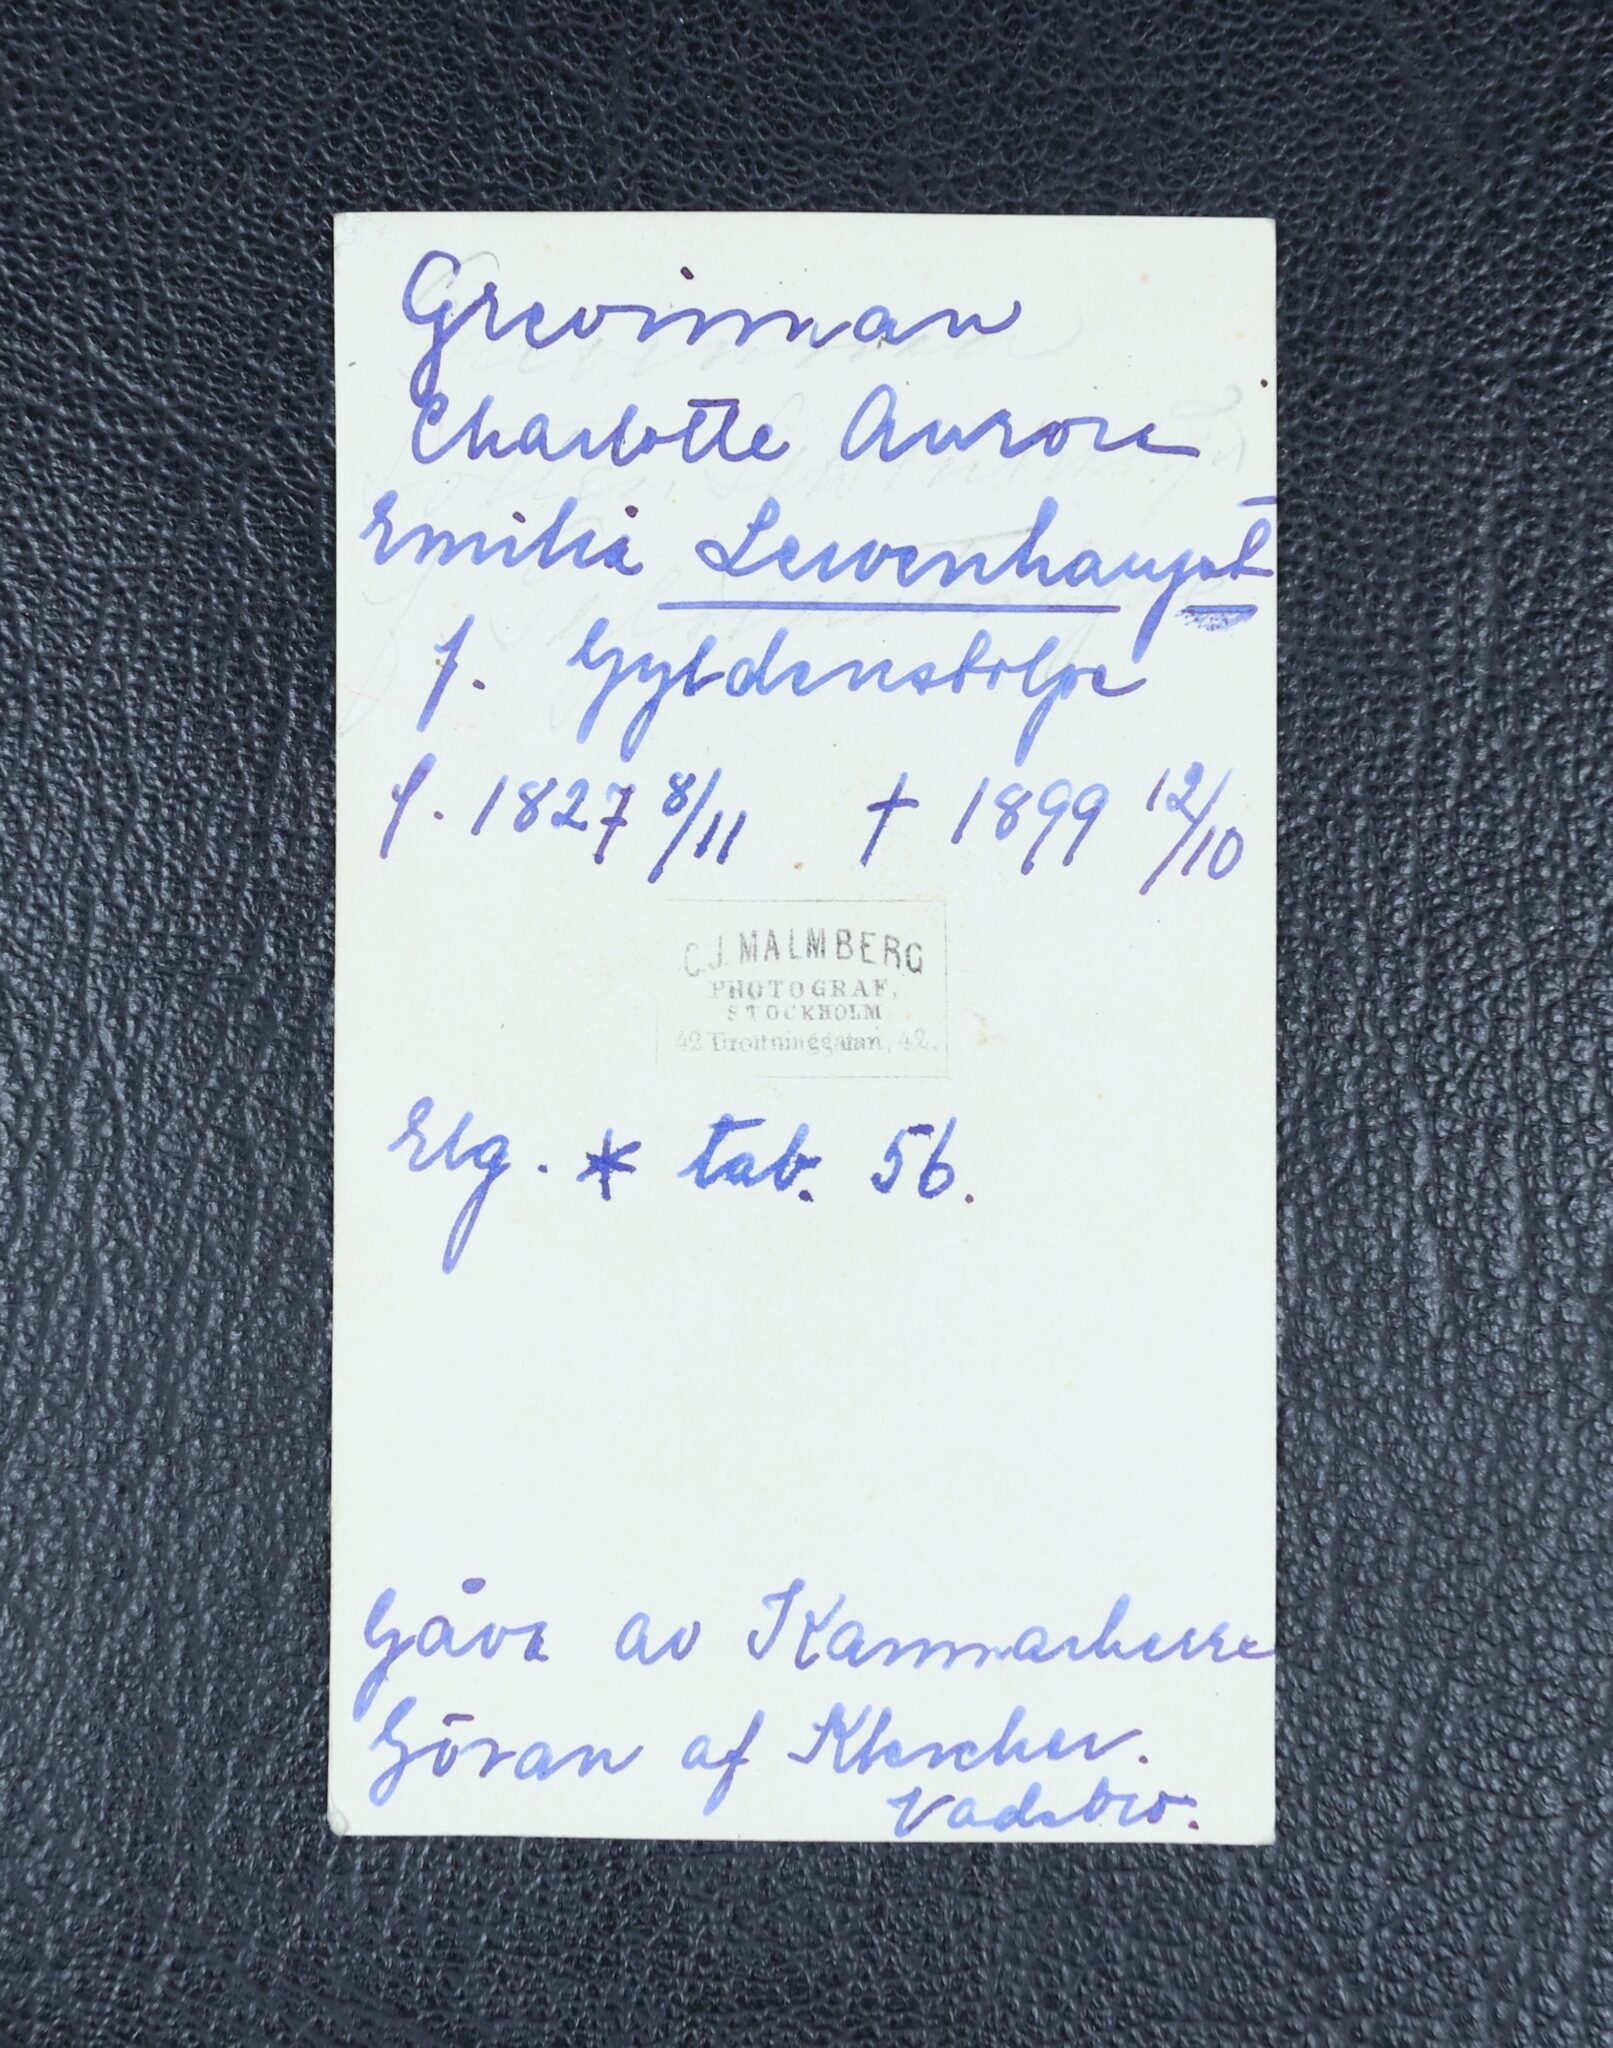 Grevinnan
Charlotte Aurora
Emilia Lewenhaupt
f. Gyldenstolpe
f. 1827 8/11 † 1899 12/10
C.J. MALMBERG
PHOTOGRAF,
STOCKHOLM
42 Drottninggatan, 42.
Elg. * tab. 56.
Gåva av Kammarherre
Göran af Klercker.
Vadsbro.